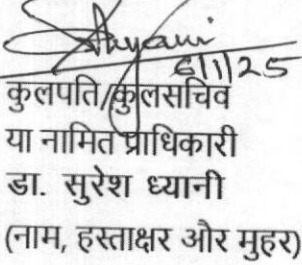 Dhyani
6/1/25
कुलपति/कुलसचिव
या नामित प्राधिकारी
डा. सुरेश ध्यानी
(नाम, हस्ताक्षर और मुहर)